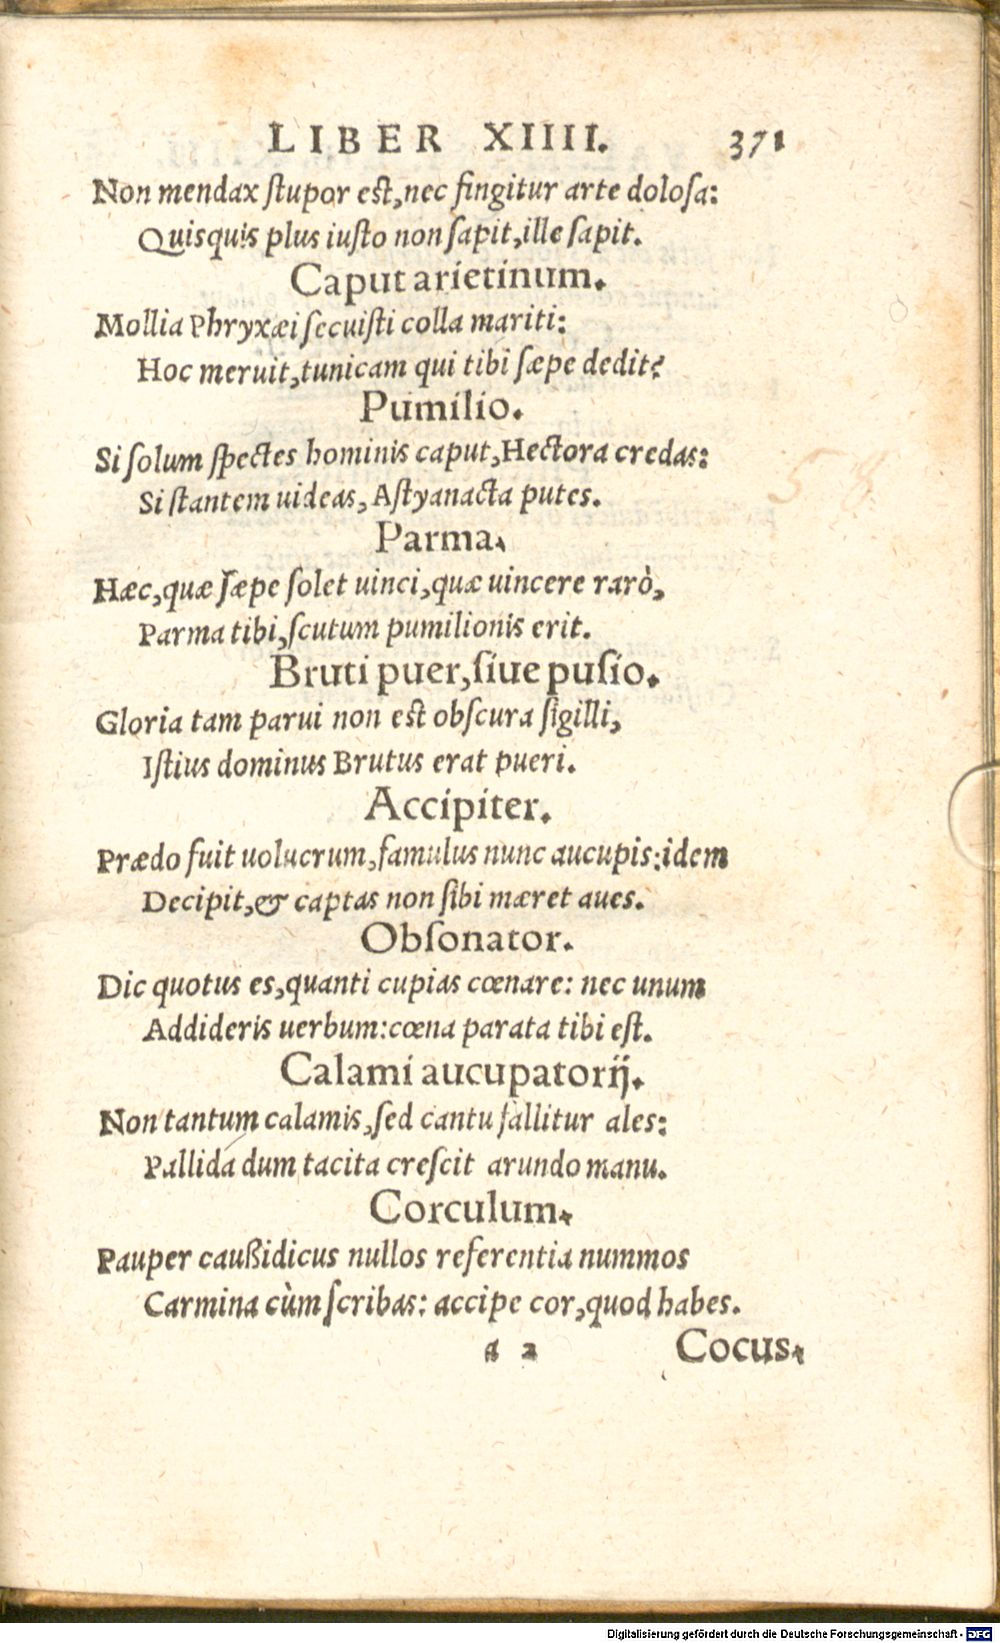 LIBER XIIII. 371
Non mendax ſtupor eſt, nec fingitur arte doloſa:
Quisquis plus iuſto non ſapit, ille ſapit.
Caput arietinum.
Mollia Phryxæi ſecuiſti colla mariti:
Hoc meruit, tunicam qui tibi ſæpe dedit?
Pumilio.
Si ſolum ſpectes hominis caput, Hectora credas:
Si ſtantem uideas, Aſtyanacta putes.
Parma.
Hæc, quæ ſæpe ſolet uinci, quæ uincere rarò,
Parma tibi, ſcutum pumilionis erit.
Bruti puer, ſiue puſio.
Gloria tam parui non eſt obſcura ſigilli,
Iſtius dominus Brutus erat pueri.
Accipiter.
Prædo fuit uolucrum, famulus nunc aucupis: idem
Decipit, & captas non ſibi mæret aues.
Obſonator.
Dic quotus es, quanti cupias cœnare: nec unum
Addideris uerbum: cœna parata tibi eſt.
Calami aucupatorij.
Non tantum calamis, ſed cantu fallitur ales:
Pallida dum tacita creſcit arundo manu.
Corculum.
Pauper caußidicus nullos referentia nummos
Carmina cùm ſcribas: accipe cor, quod habes.
a 2 Cocus.
Digitalisierung gefördert durch die Deutsche Forschungsgemeinschaft - DFG